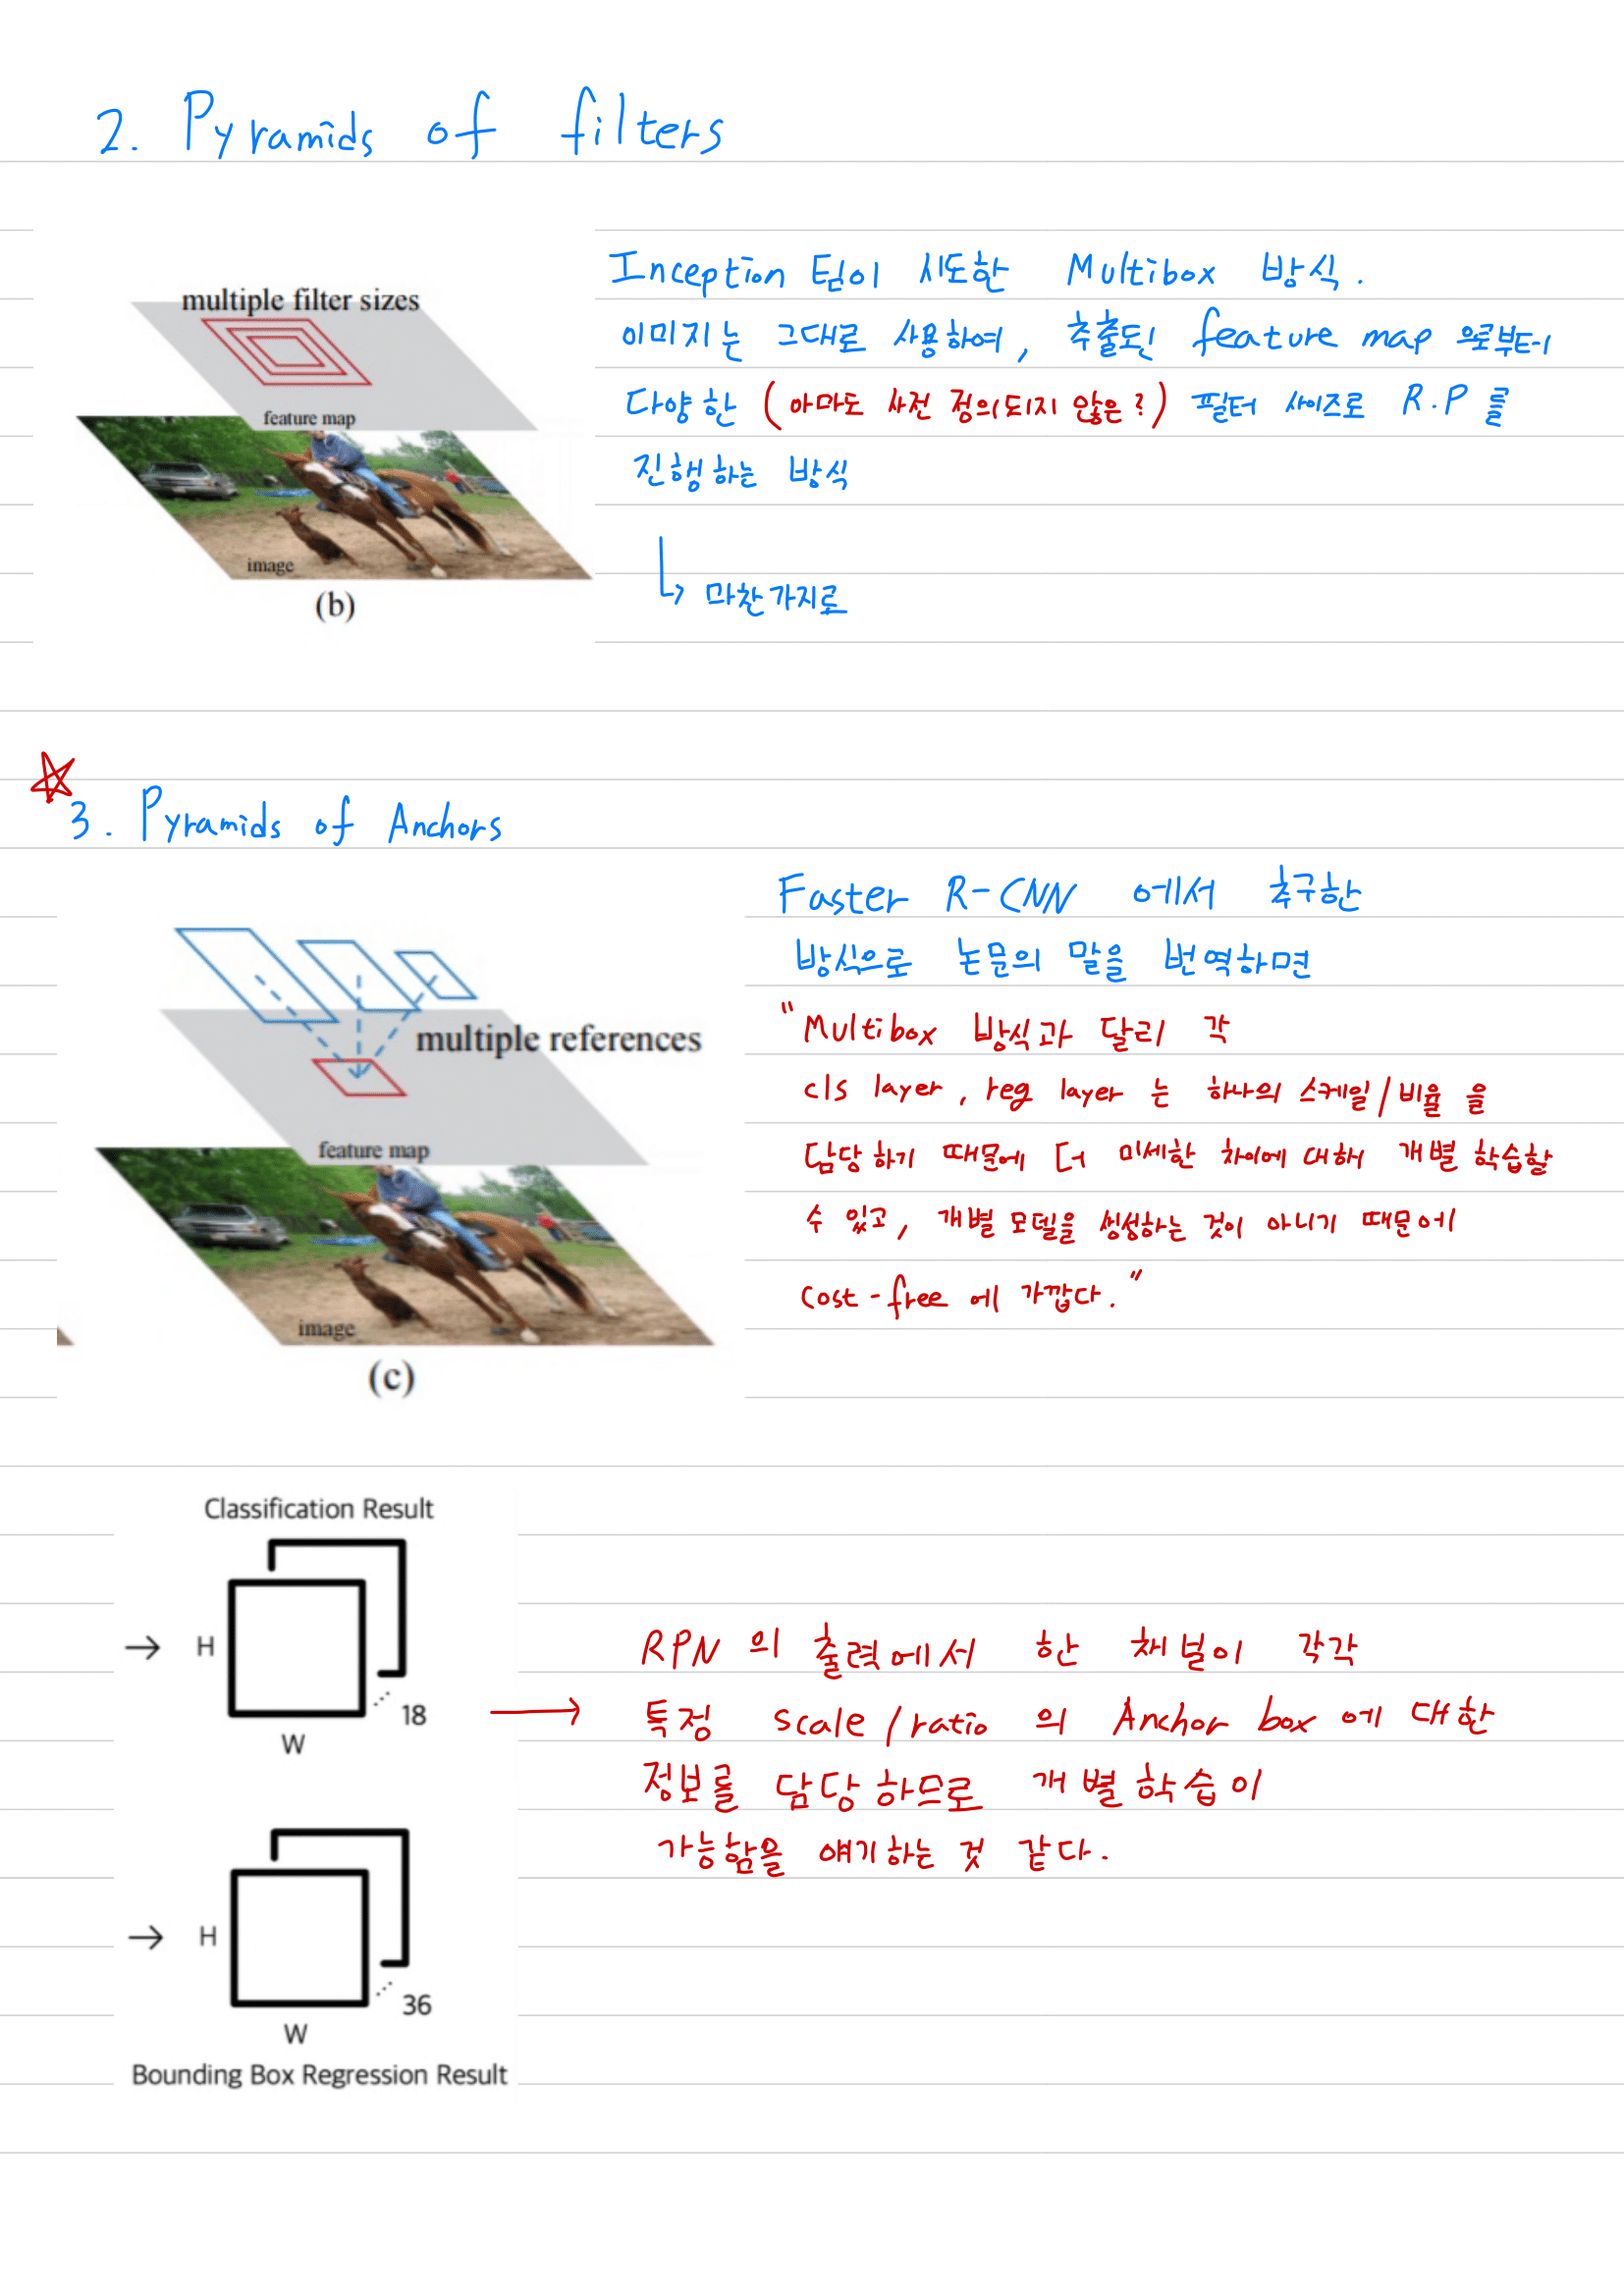 2. Pyramids of filters
multiple filter sizes
feature map
image
(b)
Inception 팀이 시도한 Multibox 방식.
이미지는 그대로 사용하여, 추출된 feature map 으로부터
다양한 (아마도 사전 정의되지 않은?) 필터 사이즈로 R.P 를
진행하는 방식
↳ 마찬가지로
3. Pyramids of Anchors
multiple references
feature map
image
(c)
Faster R-CNN 에서 추구한
방식으로 논문의 말을 번역하면
"Multibox 방식과 달리 각
cls layer, reg layer 는 하나의 스케일/비율 을
담당하기 때문에 더 미세한 차이에 대해 개별 학습할
수 있고, 개별 모델을 생성하는 것이 아니기 때문에
cost-free 에 가깝다."
Classification Result
→ H
18
W
→ H
36
W
Bounding Box Regression Result
RPN 의 출력에서 한 채널이 각각
→ 특정 scale/ratio 의 Anchor box 에 대한
정보를 담당하므로 개별학습이
가능함을 얘기하는 것 같다.